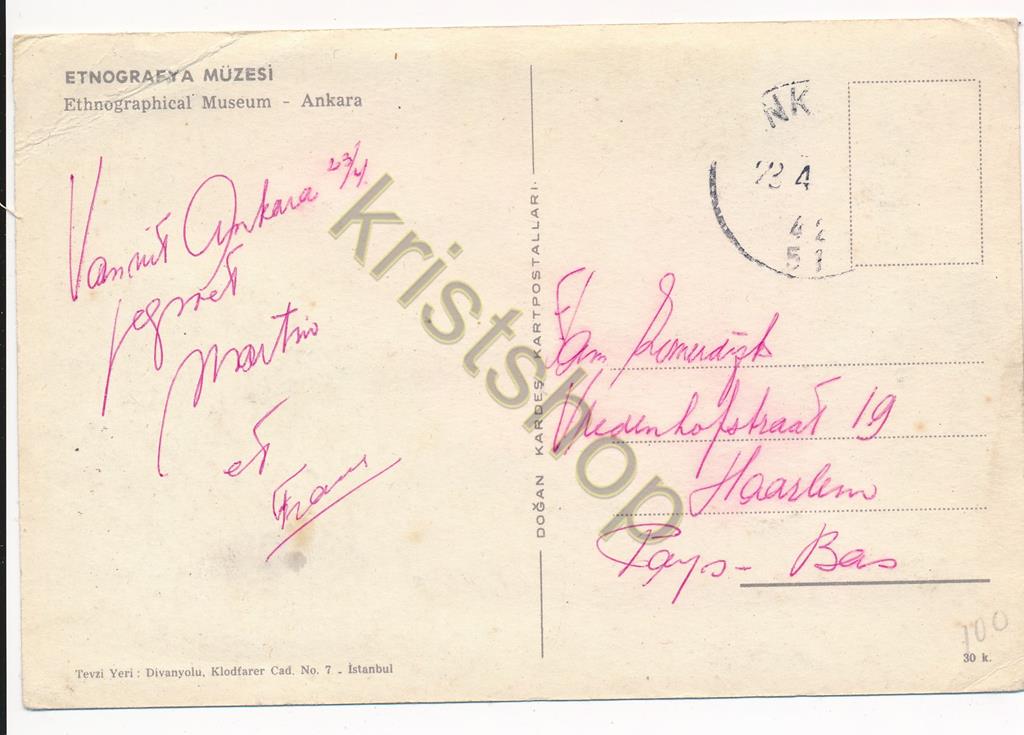 ETNOGRAFYA MÜZESİ
Ethnographical Museum - Ankara
Vanuit Ankara 23/4
Martin
et
Frans
DOĞAN KARDEŞ KARTPOSTALLARI
NK
23 4
Fam
Vredenhofstraat 19
Haarlem
Pays-Bas
kristshop
Tevzi Yeri : Divanyolu, Klodfarer Cad. No. 7 - İstanbul
100
30 k.